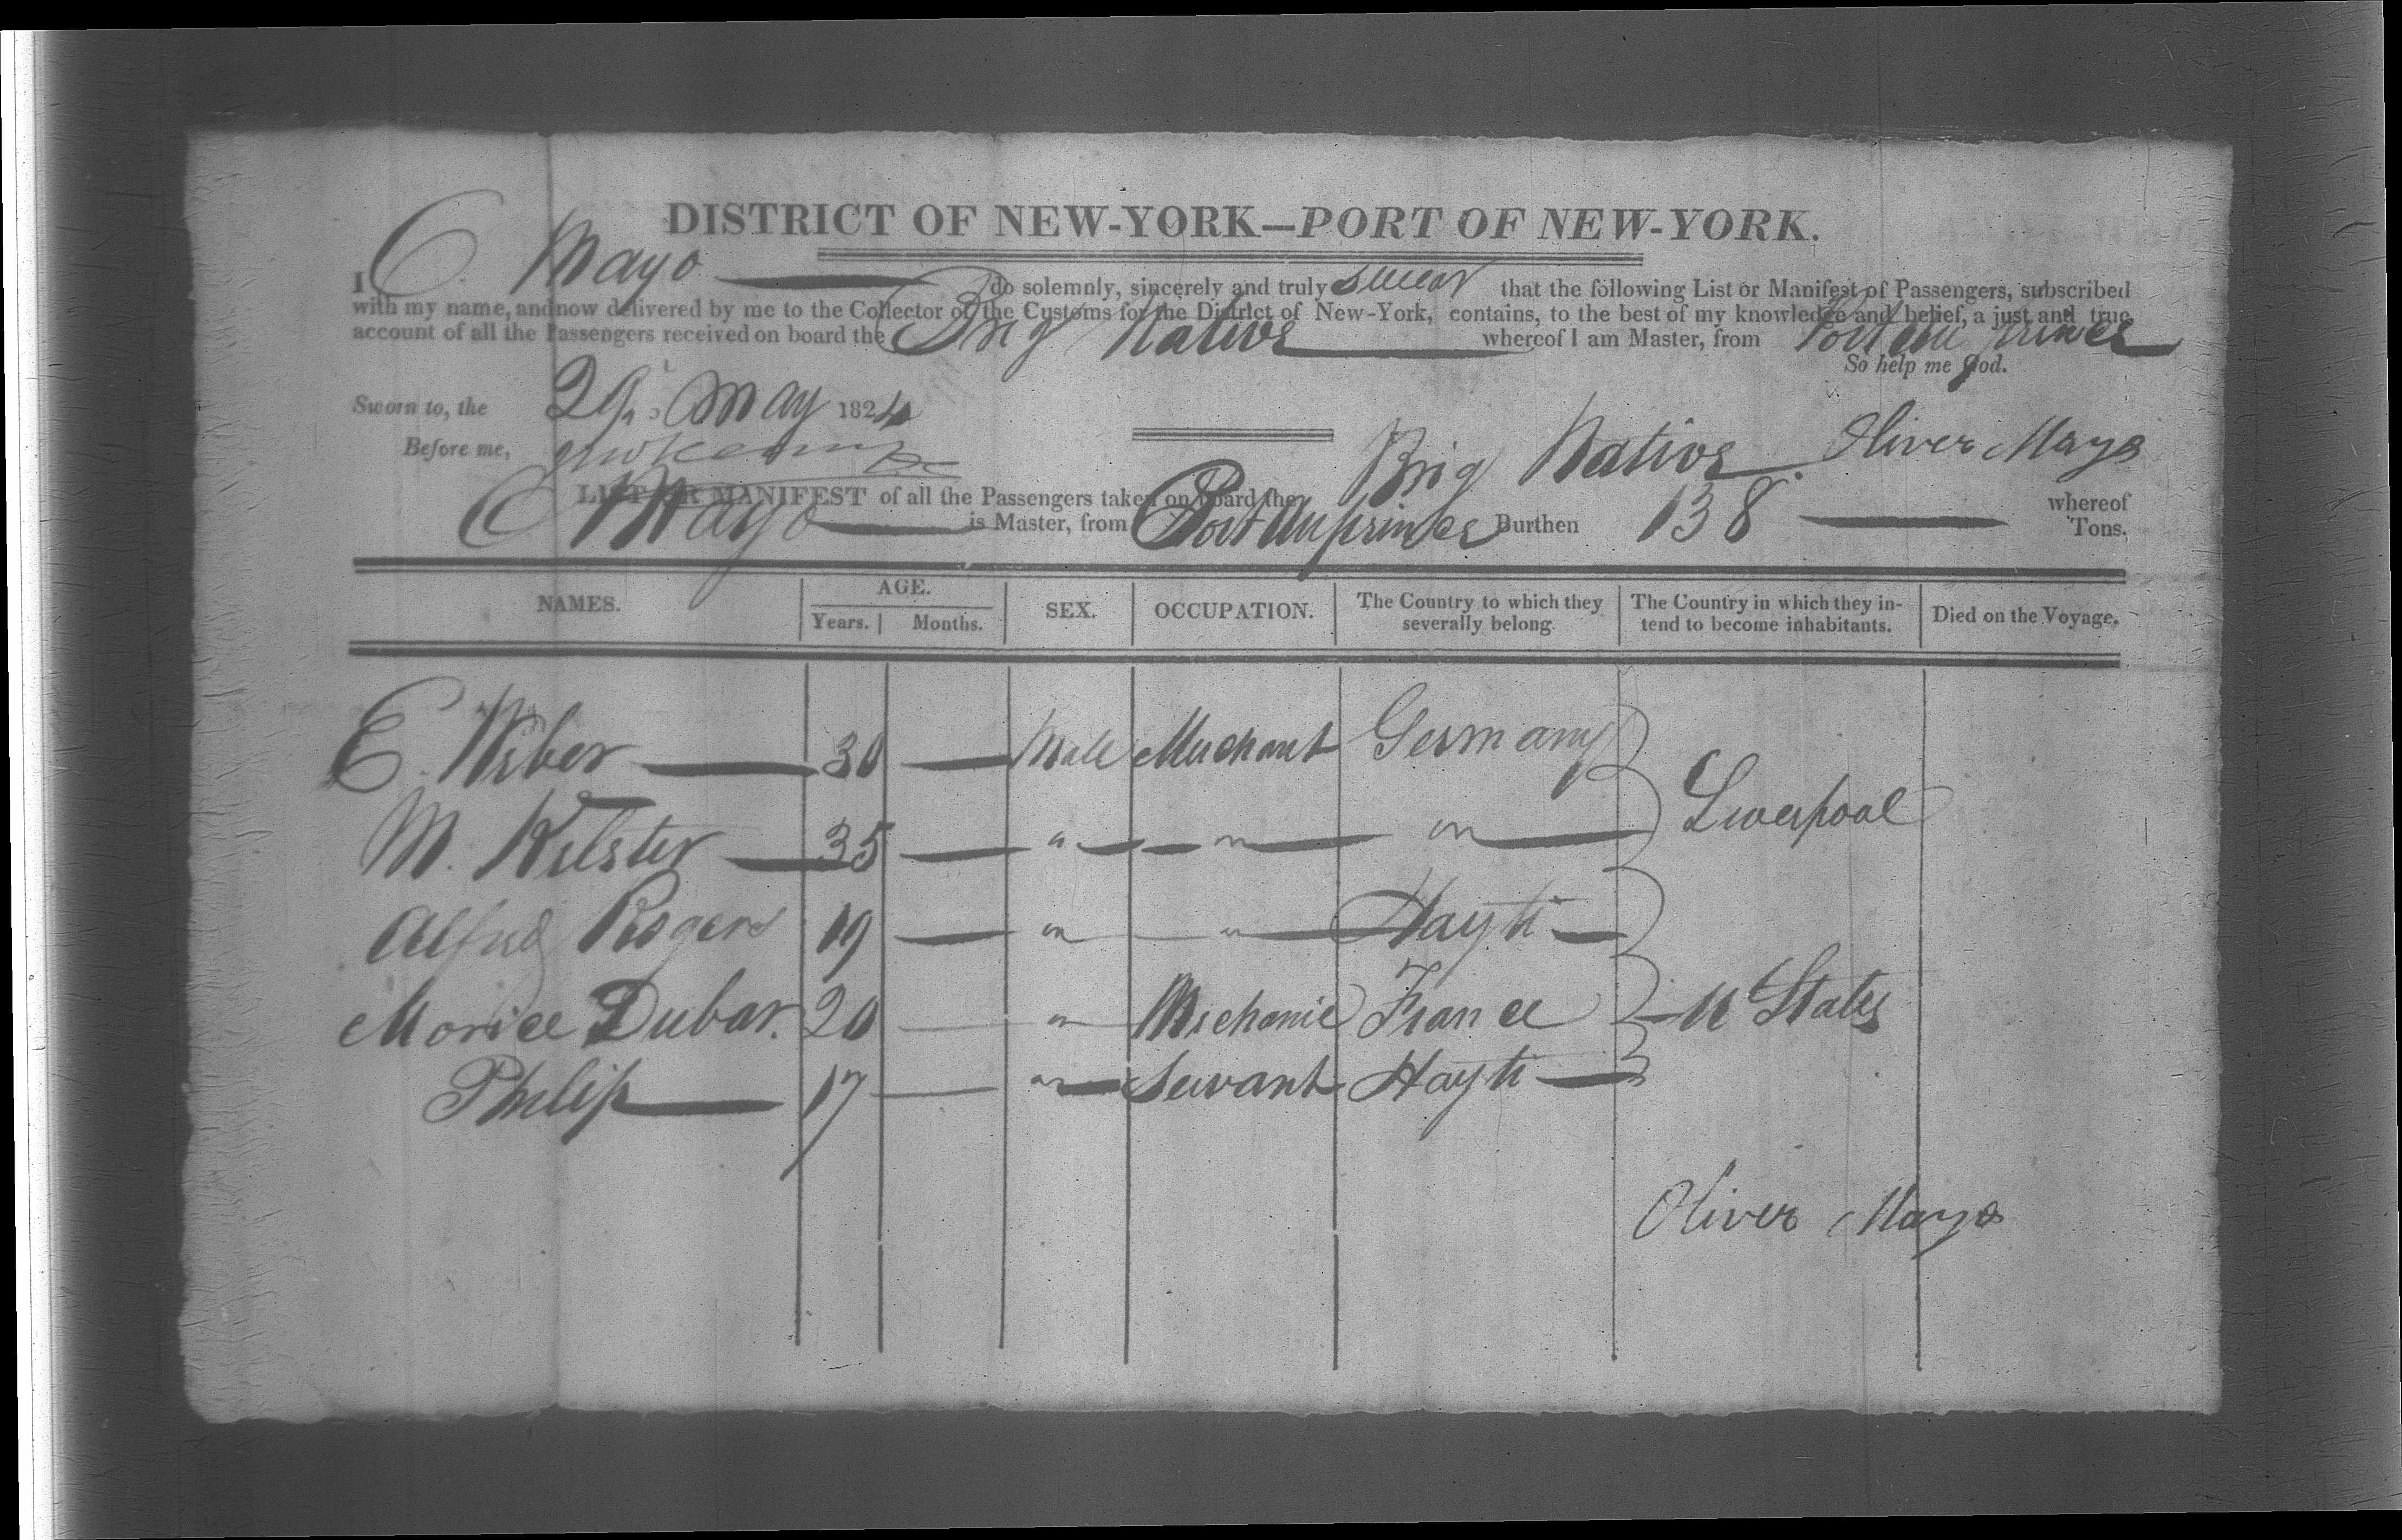 DISTRICT OF NEW-YORK—PORT OF NEW-YORK.
I O. Mayo do solemnly, sincerely and truly swear that the following List or Manifest of Passengers, subscribed
with my name, and now delivered by me to the Collector of the Customs for the District of New-York, contains, to the best of my knowledge and belief, a just and true
account of all the Passengers received on board the Brig Native whereof I am Master, from Port au prince
So help me God.
Sworn to, the 29 May 1824
Before me,
Oliver Mayo
LIST OR MANIFEST of all the Passengers taken on board the Brig Native whereof
O Mayo is Master, from Port Au prince Burthen 138 Tons.
NAMES. AGE. SEX. OCCUPATION. The Country to which they severally belong. The Country in which they intend to become inhabitants. Died on the Voyage.
Years. Months.
E. Weber — 30 — Male Merchant Germany
M. — 35 — " — " — " — Liverpool
Alfred Rogers 19 — " — " — Hayti —
Morice Dubar. 20 — " Mechanic France — U States
Philip — 17 — " — Servant Hayti —
Oliver Mayo